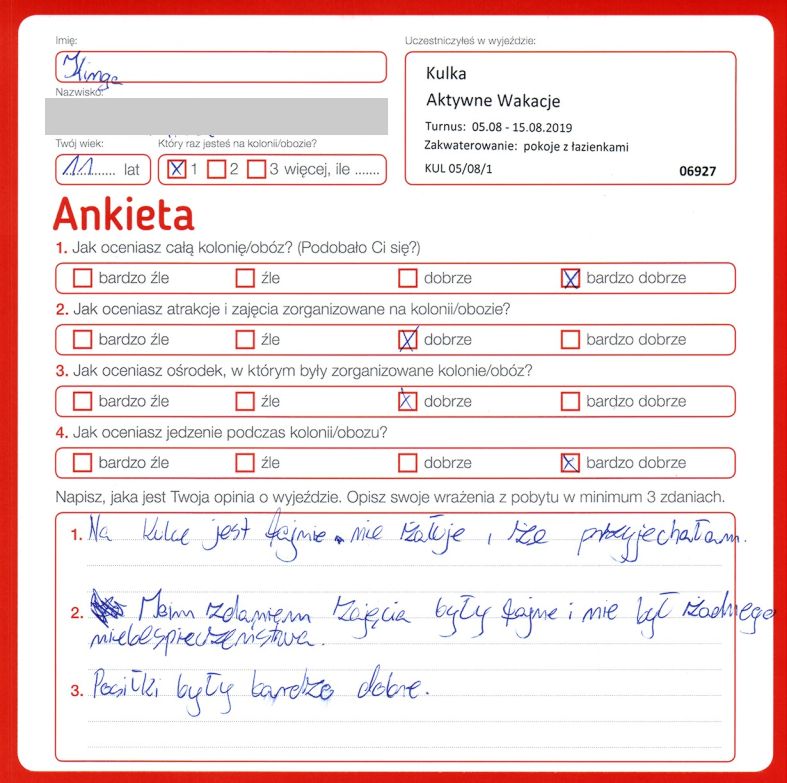 Imię:
Uczestniczyłeś w wyjeździe:
Kinga
Kulka
Aktywne Wakacje
Turnus: 05.08 - 15.08.2019
Zakwaterowanie: pokoje z łazienkami
KUL 05/08/1
06927
Nazwisko:
Twój wiek:
Który raz jesteś na kolonii/obozie?
11...... lat
1 2 3 więcej, ile .......
Ankieta
1. Jak oceniasz całą kolonię/obóz? (Podobało Ci się?)
bardzo źle źle dobrze bardzo dobrze
2. Jak oceniasz atrakcje i zajęcia zorganizowane na kolonii/obozie?
bardzo źle źle dobrze bardzo dobrze
3. Jak oceniasz ośrodek, w którym były zorganizowane kolonie/obóz?
bardzo źle źle dobrze bardzo dobrze
4. Jak oceniasz jedzenie podczas kolonii/obozu?
bardzo źle źle dobrze bardzo dobrze
Napisz, jaka jest Twoja opinia o wyjeździe. Opisz swoje wrażenia z pobytu w minimum 3 zdaniach.
1. Na Kulce jest fajnie. nie rzałuje, rze przyjechałam.
2. Moim zdaniem zajęcia były fajne i nie był rzadnego
niebespieczeństwa.
3. Posiłki były bardzo dobre.